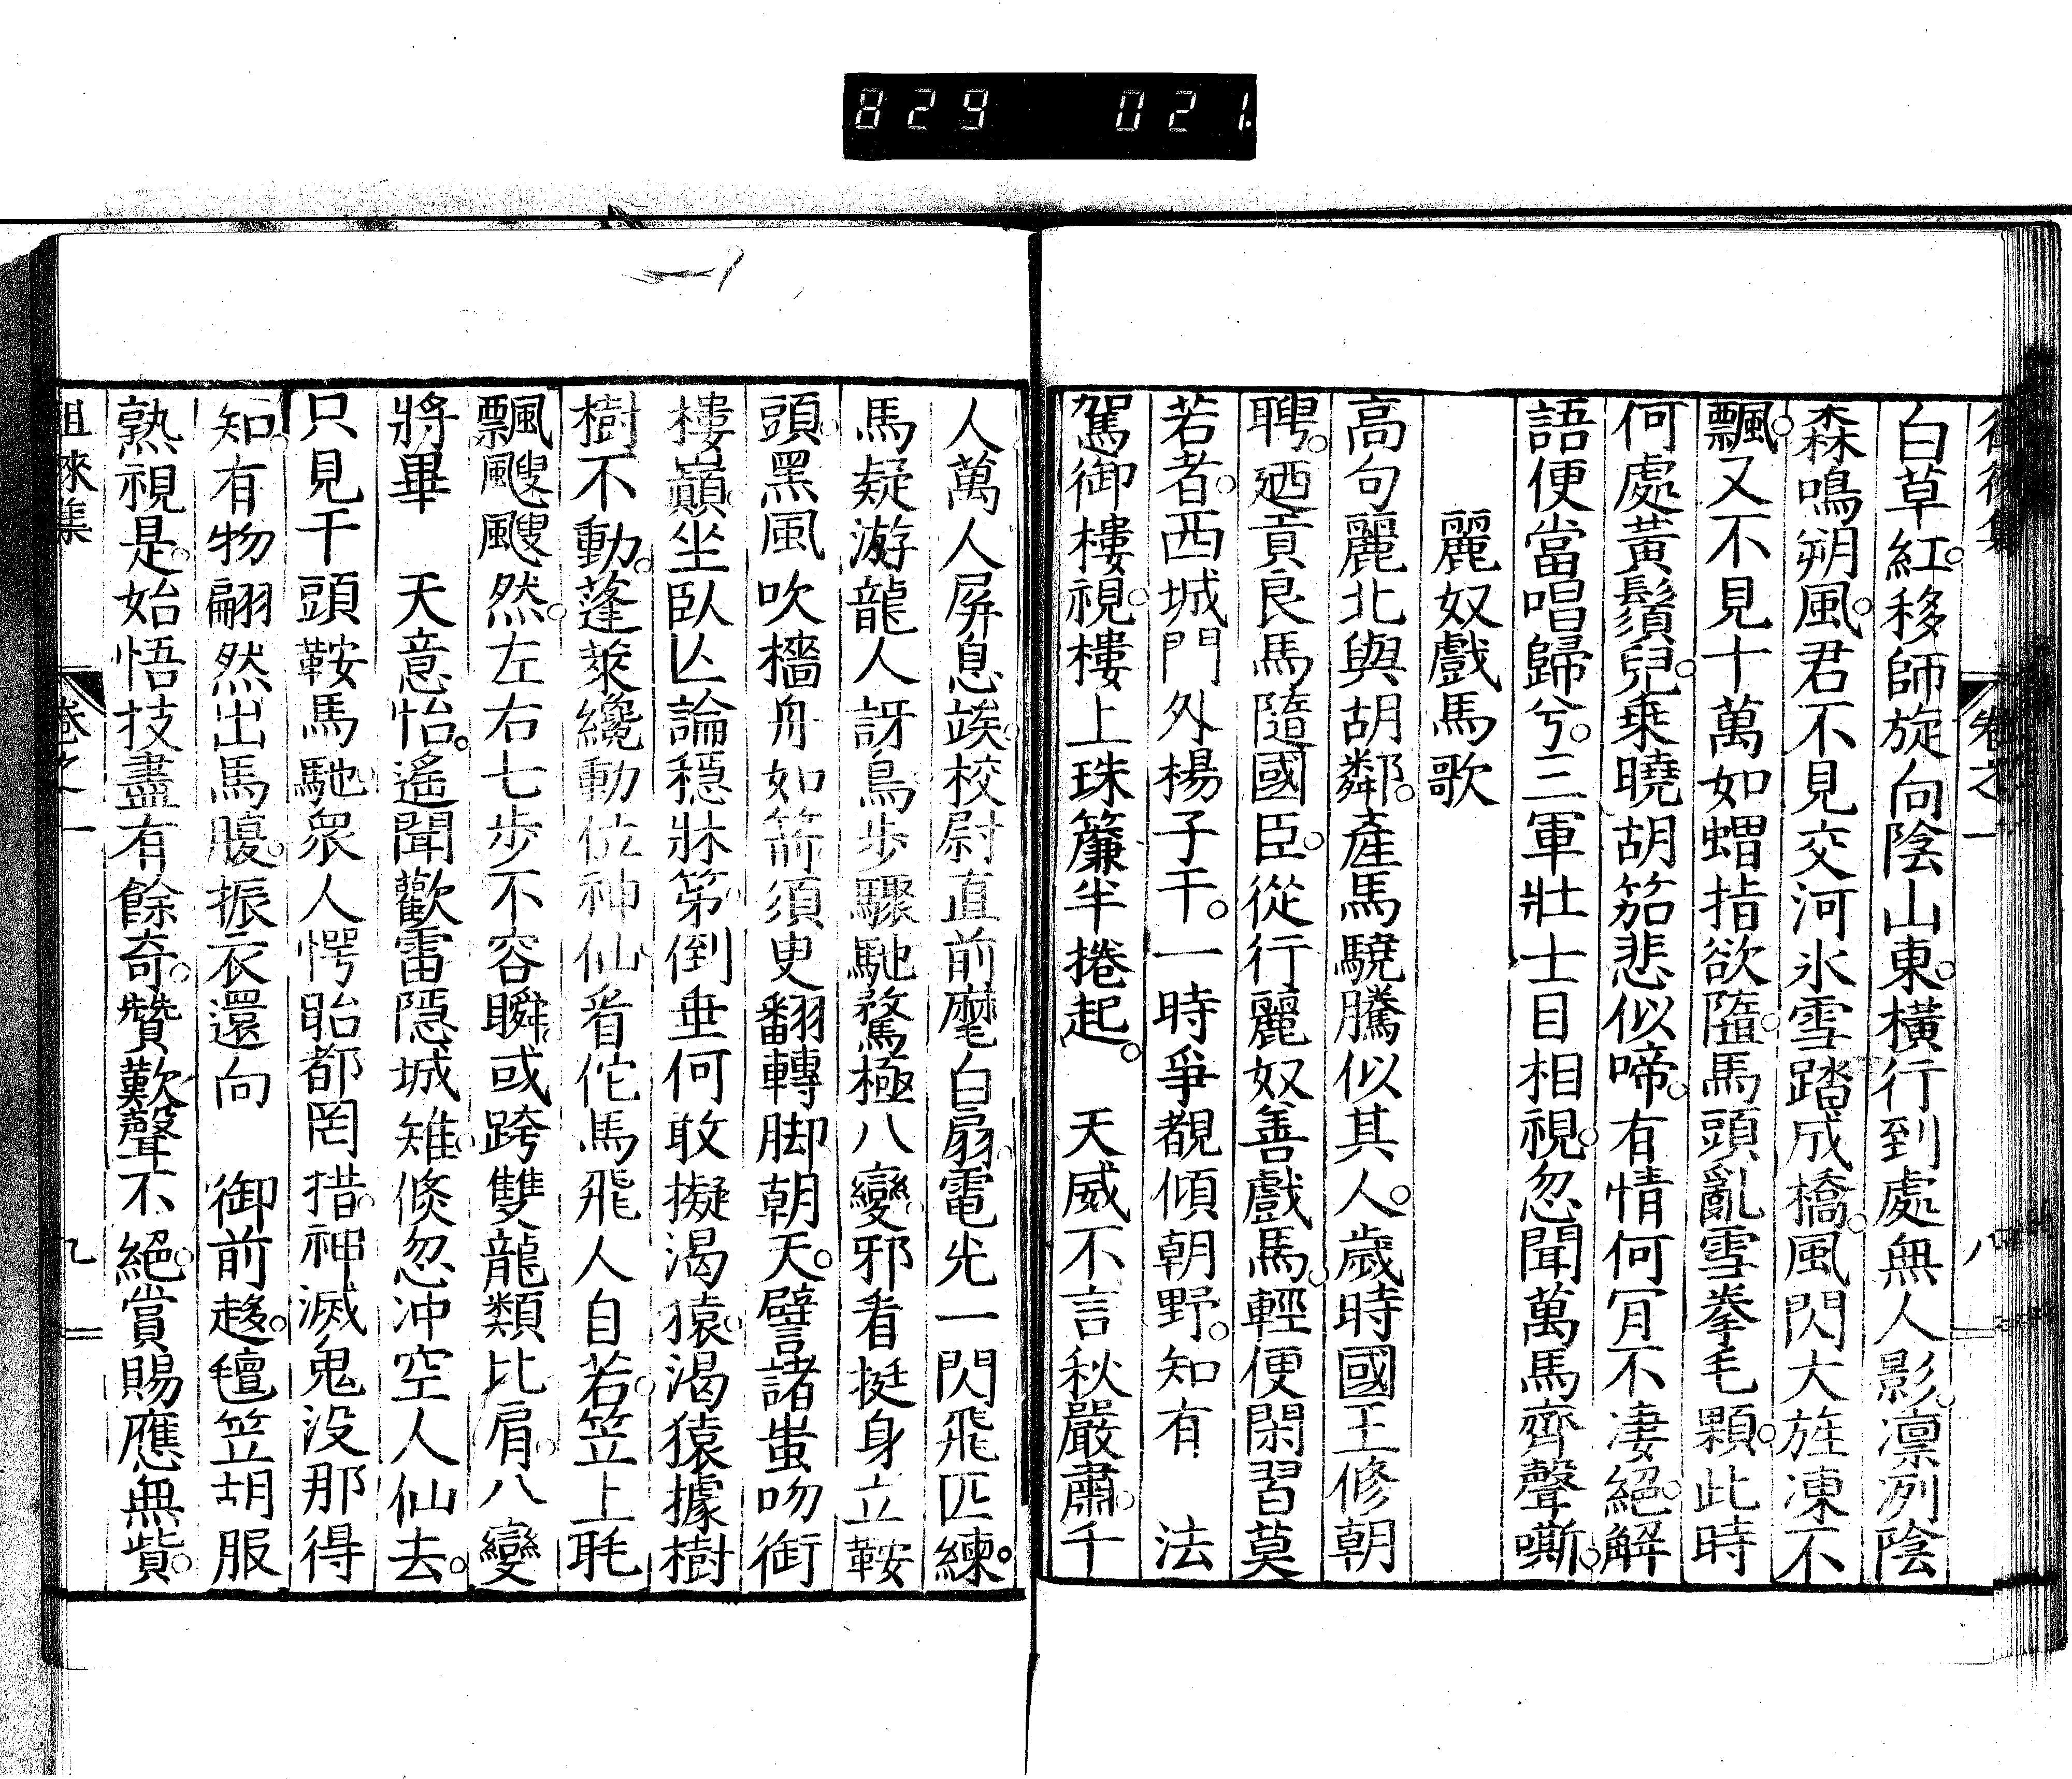 829 021.
卷之一 八
白草紅。移師旋向陰山東。橫行到處無人影。凛冽陰
森鳴朔風。君不見交河氷雪踏成橋。風閃大旌凍不
飄。又不見十萬如蝟指欲墮。馬頭亂雪拳毛顆。此時
何處黃鬚兒。乘曉胡笳悲似啼。有情何冝不凄絕。解
語便當唱歸兮。三軍壯士目相視。忽聞萬馬齊聲嘶。
麗奴戲馬歌
高句麗北與胡鄰。產馬驍騰似其人。歲時國王修朝
聘。廼貢良馬隨國臣。從行麗奴善戲馬。輕便閑習莫
若者。西城門外楊子干。一時爭覩傾朝野。知有 法
駕御樓視。樓上珠簾半捲起。 天威不言秋嚴肅。千
人萬人屏息竢。校尉直前麾白扇。電光一閃飛匹練。
馬疑游龍人訝鳥。步驟馳騖極八變。邪看挺身立鞍
頭。黑風吹檣舟如箭。須臾翻轉脚朝天。譬諸蚩吻銜
樓巔。坐臥亾論穩牀笫。倒垂何敢擬渴猿。渴猿據樹
樹不動。蓬萊纔動位神仙。看佗馬飛人自若。笠上毦
飄颼颼然。左右七步不容瞬。或跨雙龍類比肩。八變
將畢 天意怡。遙聞歡雷隱城雉。倐忽冲空人仙去。
只見干頭鞍馬馳。衆人愕眙都罔措。神滅鬼没那得
知。有物翩然出馬腹。振衣還向 御前趍。氊笠胡服
熟視是。始悟技盡有餘奇。贊歎聲不絕。賞賜應無貲。
徂徠集 卷之一 九